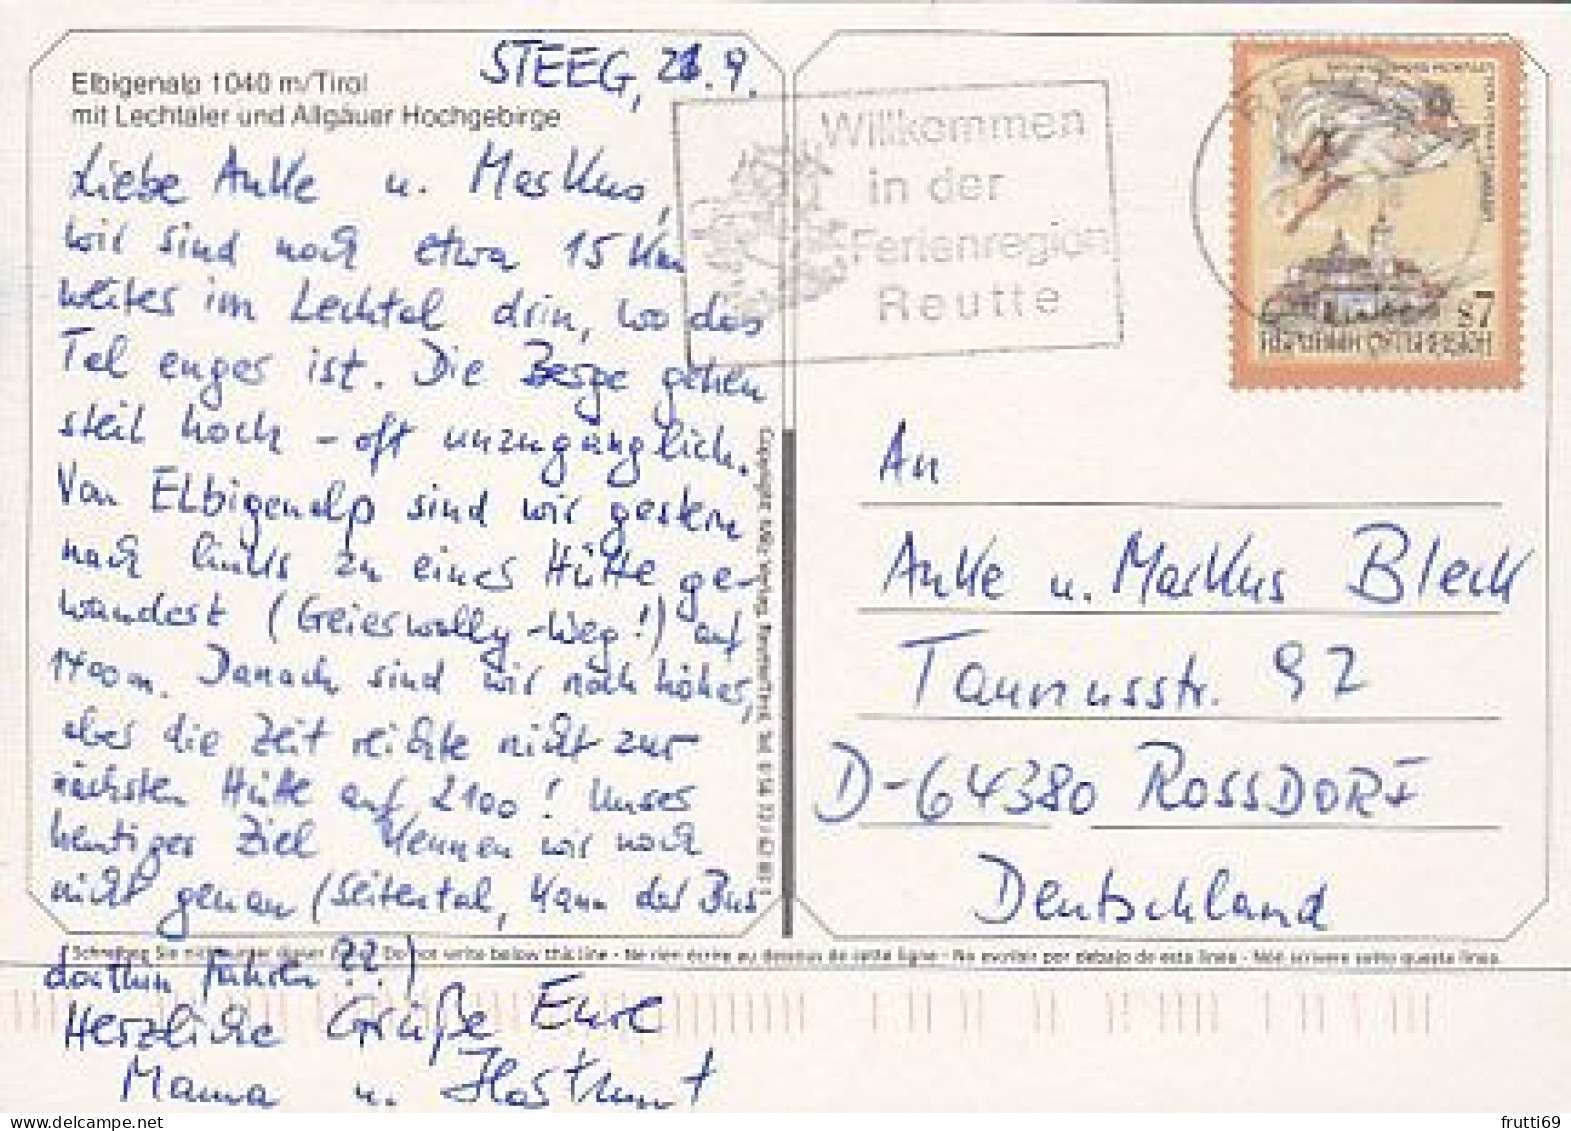 Elbigenalp 1040 m/Tirol
mit Lechtaler und Allgäuer Hochgebirge
STEEG, 21.9.
Liebe Anke u. Markus,
wir sind noch etwa 15 km
weiter im Lechtal drin, wo das
Tal enger ist. Die Berge gehen
steil hoch – oft unzugänglich.
Von Elbigenalp sind wir gestern
nach links zu einer Hütte ge-
wandert (Geierwally-Weg!) auf
1400m. Danach sind wir noch höher,
aber die Zeit reichte nicht zur
nächsten Hütte auf 2100! Unser
heutiges Ziel kennen wir noch
nicht genau (Seitental, kann der Bus
dorthin fahren??)
Herzliche Grüße Eure
Mama u. Hartmut
Schreiben Sie nicht unter dieser - Do not write below this line - Ne rien écrire au dessous de cette ligne - No escribir por debajo de esta linea - Non scrivere sotto questa linea.
Willkommen
in der
Ferienregion
Reutte
S7
REPUBLIK ÖSTERREICH
An
Anke u. Markus Bleck
Taunusstr. 92
D-64380 ROSSDORF
Deutschland
frutti69